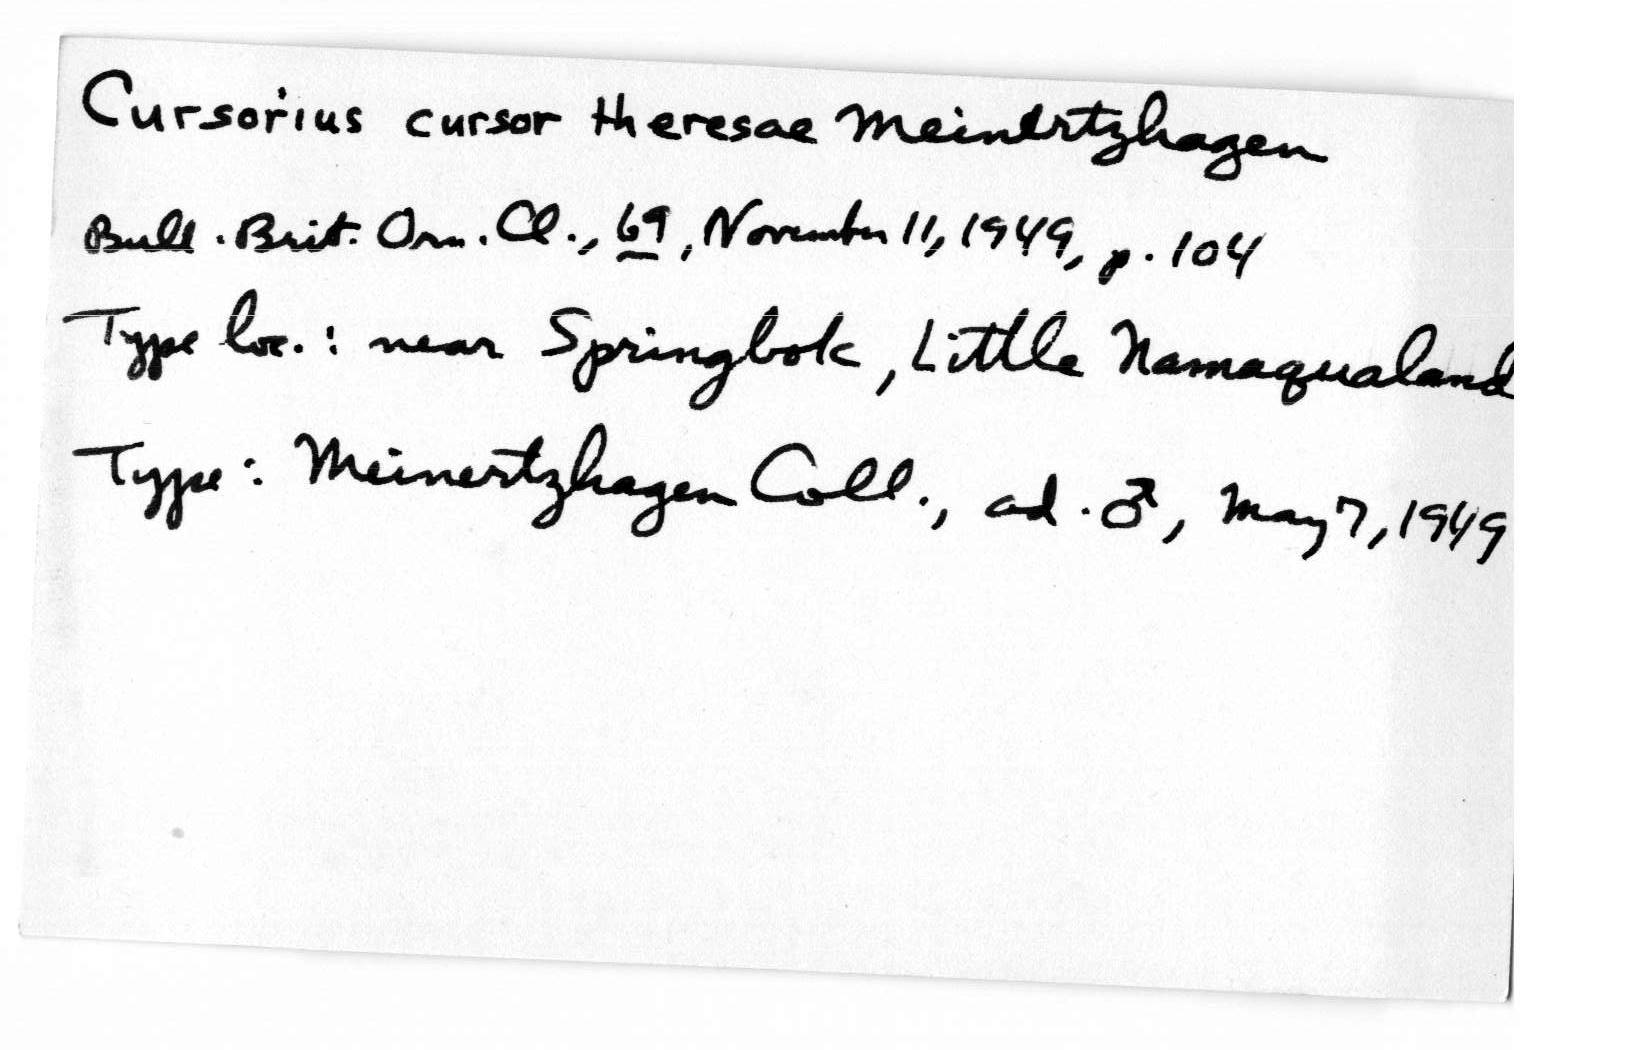 Cursorius cursor theresae Meinertzhagen
Bull. Brit. Orn. Cl., 69, November 11, 1949, p. 104
Type loc.: near Springbok, Little Namaqualand
Type: Meinertzhagen Coll., ad. ♂, May 7, 1949